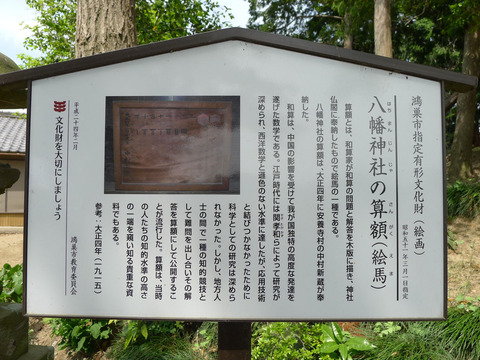 鴻巣市指定有形文化財(絵画)
昭和五十八年三月一日指定
八幡神社の算額(絵馬)
はちまんじんじゃ さんがく えま
算額とは、和算家が和算の問題と解答を木版に描き、神社
仏閣に奉納したもので絵馬の一種である。
八幡神社の算額は、大正四年に安養寺村の中村新蔵が奉
納した。
和算は、中国の影響を受けて我が国独特の高度な発達を
遂げた数学である。江戸時代には関孝和らによって研究が
深められ、西洋数学と遜色のない水準に達したが、応用技術
と結びつかなかったために
科学としての研究は深めら
れなかった。しかし、地方人
士の間で一種の知的競技と
して難問を出し合いその解
答を算額にして公開するこ
とが流行した。算額は、当時
の人たちの知的水準の高さ
の一端を窺い知る貴重な資
料でもある。
参考:大正四年(一九一五)
平成二十四年二月
文化財を大切にしましょう
鴻巣市教育委員会